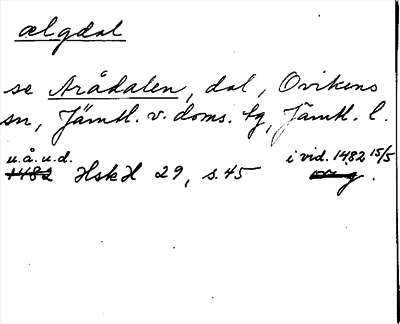 ælgdal
se Arådalen, dal, Ovikens
sn, Jämtl. v. doms. tg, Jämtl. l.
u.å.u.d. i vid. 1482 15/5
1482 HskH 29, s. 45 or. g.